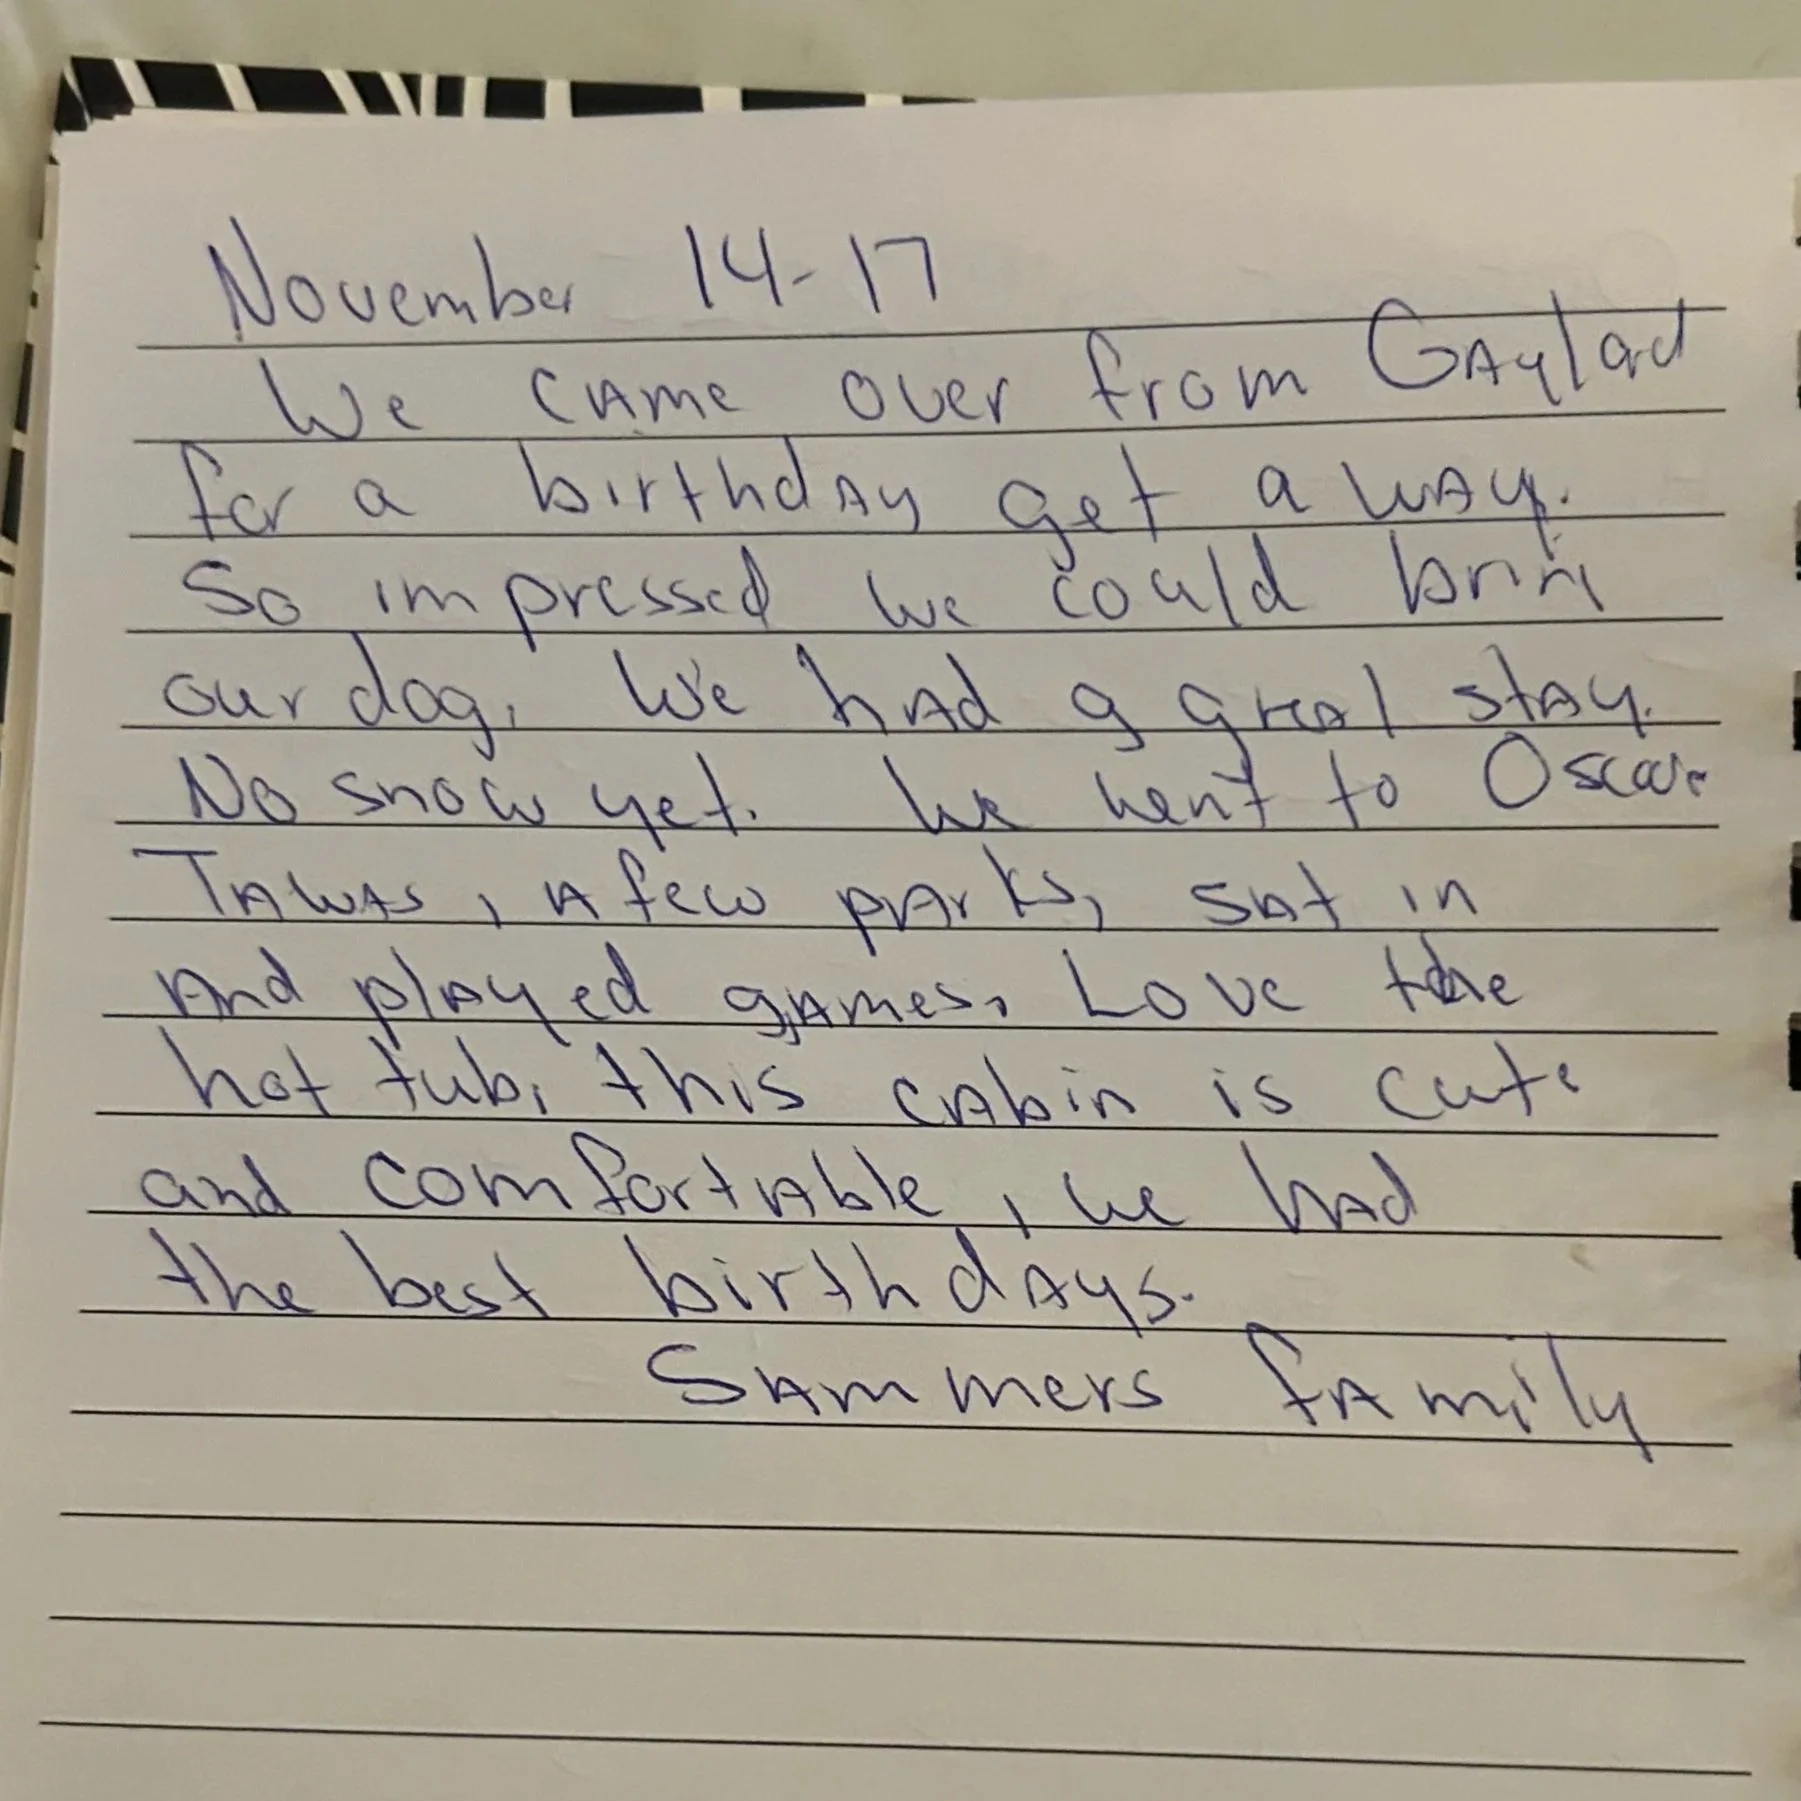 November 14-17
We came over from Gaylad
for a birthday get a way.
So impressed we could brin
our dog. We had a great stay.
No snow yet. We went to
Tawas, a few parks, sat in
and played games. Love the
hot tub, this cabin is cute
and comfortable, we had
the best birthdays.
Sammers family